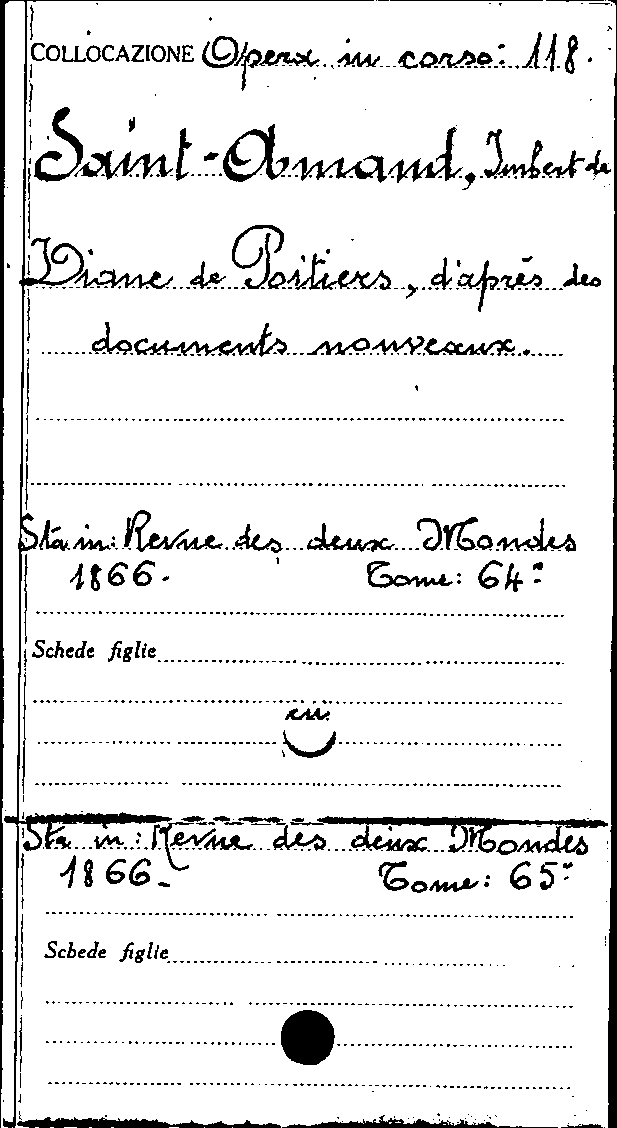 COLLOCAZIONE Opera in corso: 118.
Saint-Amand, Imbert de
Diane de Poitiers, d'après des
documents nouveaux.
Sta in: Revue des deux Mondes
1866. Tome: 64º
Schede figlie
Sta in: Revue des deux Mondes
1866_ Tome: 65º
Schede figlie